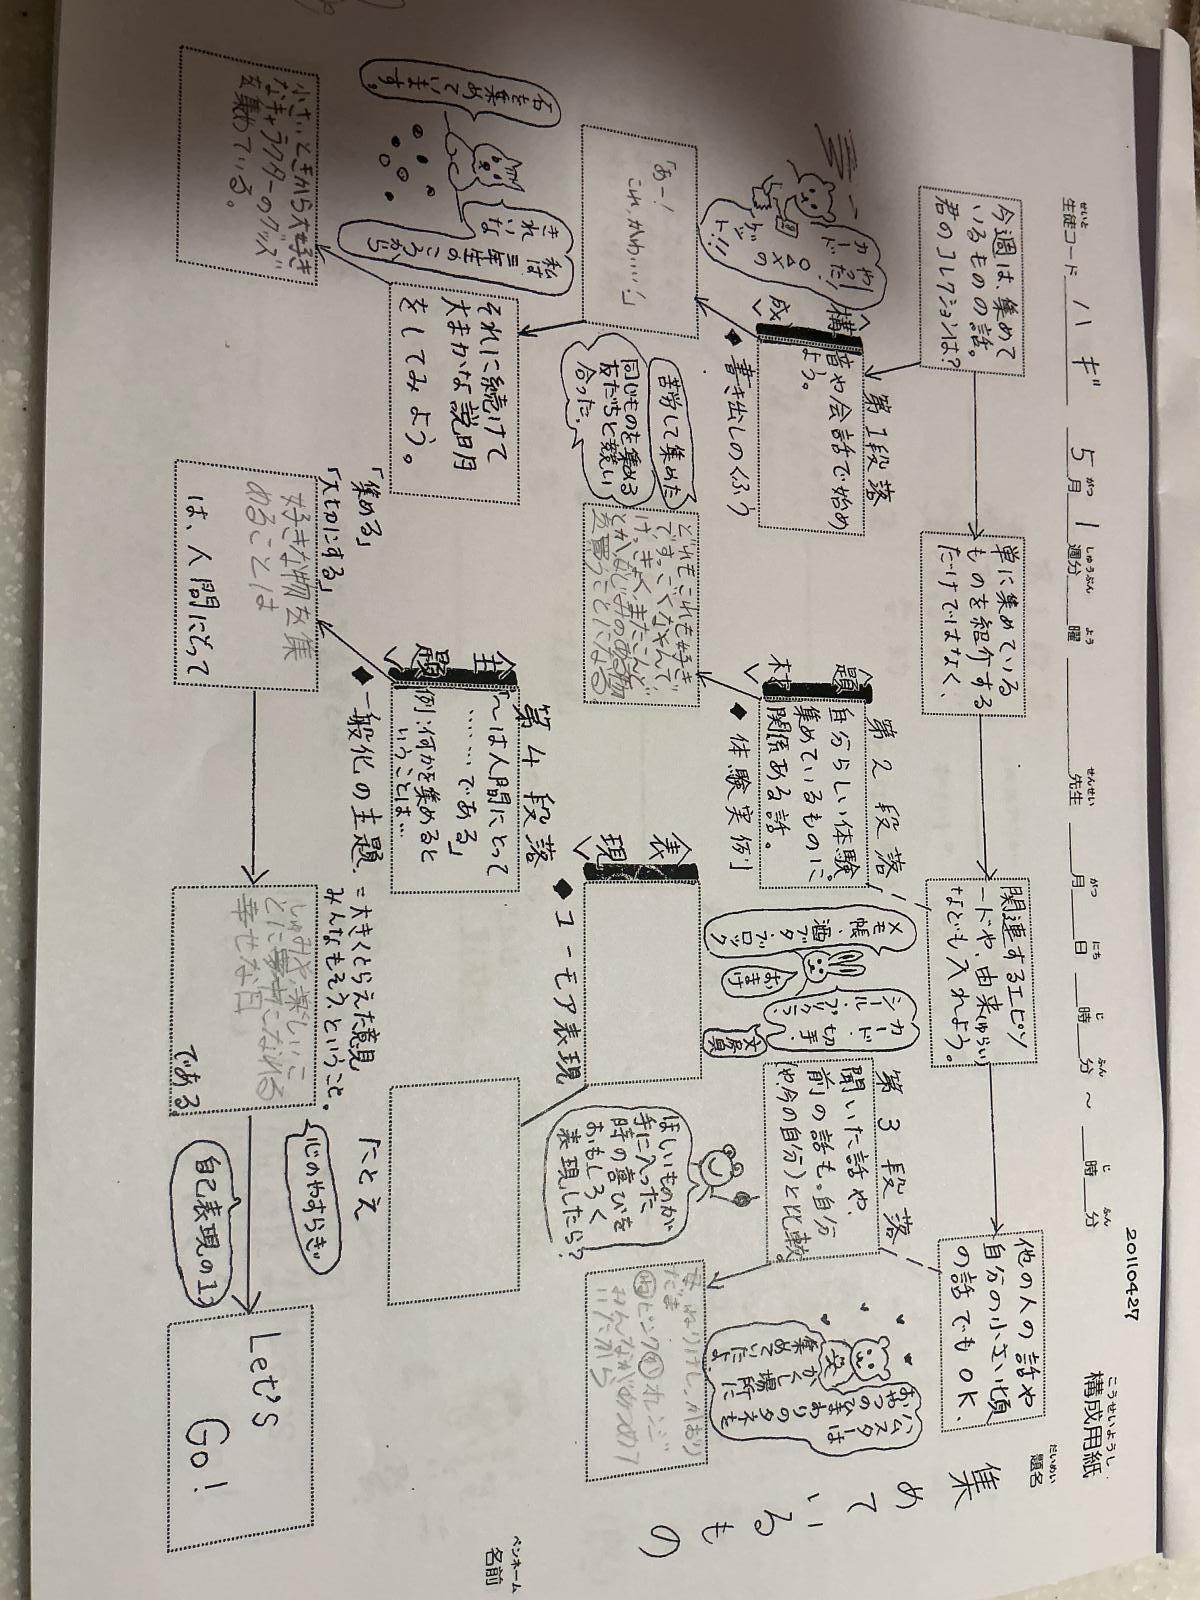 20110427
こうせいようし
構成用紙
せいと
生徒コード ハギ 5月1週分 曜 先生 月 日 時 分 ～ 時 分
がつ しゅうぶん よう せんせい がつ にち じ ふん じ ふん
だいめい
題名
集めているもの
ペンネーム
名前
今週は、集めて
いるものの話。
君のコレクションは？
単に集めている
ものを紹介する
だけではなく、
関連するエピソ
ードや、由来(ゆらい)
なども入れよう。
他の人の話や
自分の小さい頃
の話でもOK、
〈構成〉
第1段落
音や会話で始め
よう。
◆書き出しのくふう
やったー!
カード
○△×の
ゲット!!
「あー!
これ、かわ……」
それに続けて
大まかな説明
をしてみよう。
私は
三年生のころから
きれいな
石を集め
ています。
小さいときから大好き
なキャラクターのグッズ
を集めている。
〈題材〉
第2段落
自分らしい体験
集めているものに。
関係ある話。
◆体験実例
苦労して集めた
同じものを集める
友だちと競い
合った、
どれもこれも好き
メモ帳、
酒ブタ・ブロック
おまけ
カード・
シール・切手、
文房具
第3段落
聞いた話や、
前の話も。自分
や今の自分)と比較。
ハムスターは
おやつの
ひまわりのタネを
かくし場所に
集めていたよ
ねりけし、かおり
だま
ピンク オレンジ
みんながあつめて
いたから
〈表現〉
◆ユーモア表現
ほしいものが
手に入った
時の喜びを
おもしろく
表現したら?
たとえ
〈主題〉
第4段落
「〜は人間にとって
………である」
例：何かを集めると
いうことは…
◆一般化の主題
＝大きくとらえた意見
みんなもそう、ということ。
「集める」
「大切にする」
好きな物を集
めることは
は、人間にとって
しゅみや、楽しいこ
とに夢中になれる
幸せな日
である
心のやすらぎ。
自己表現の1つ
Let's
Go!